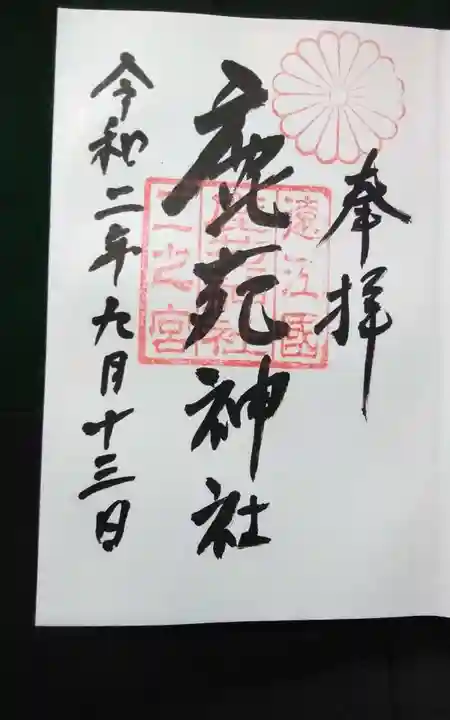 奉拝
鹿苑神社
令和二年九月十三日
遠江國
二之宮